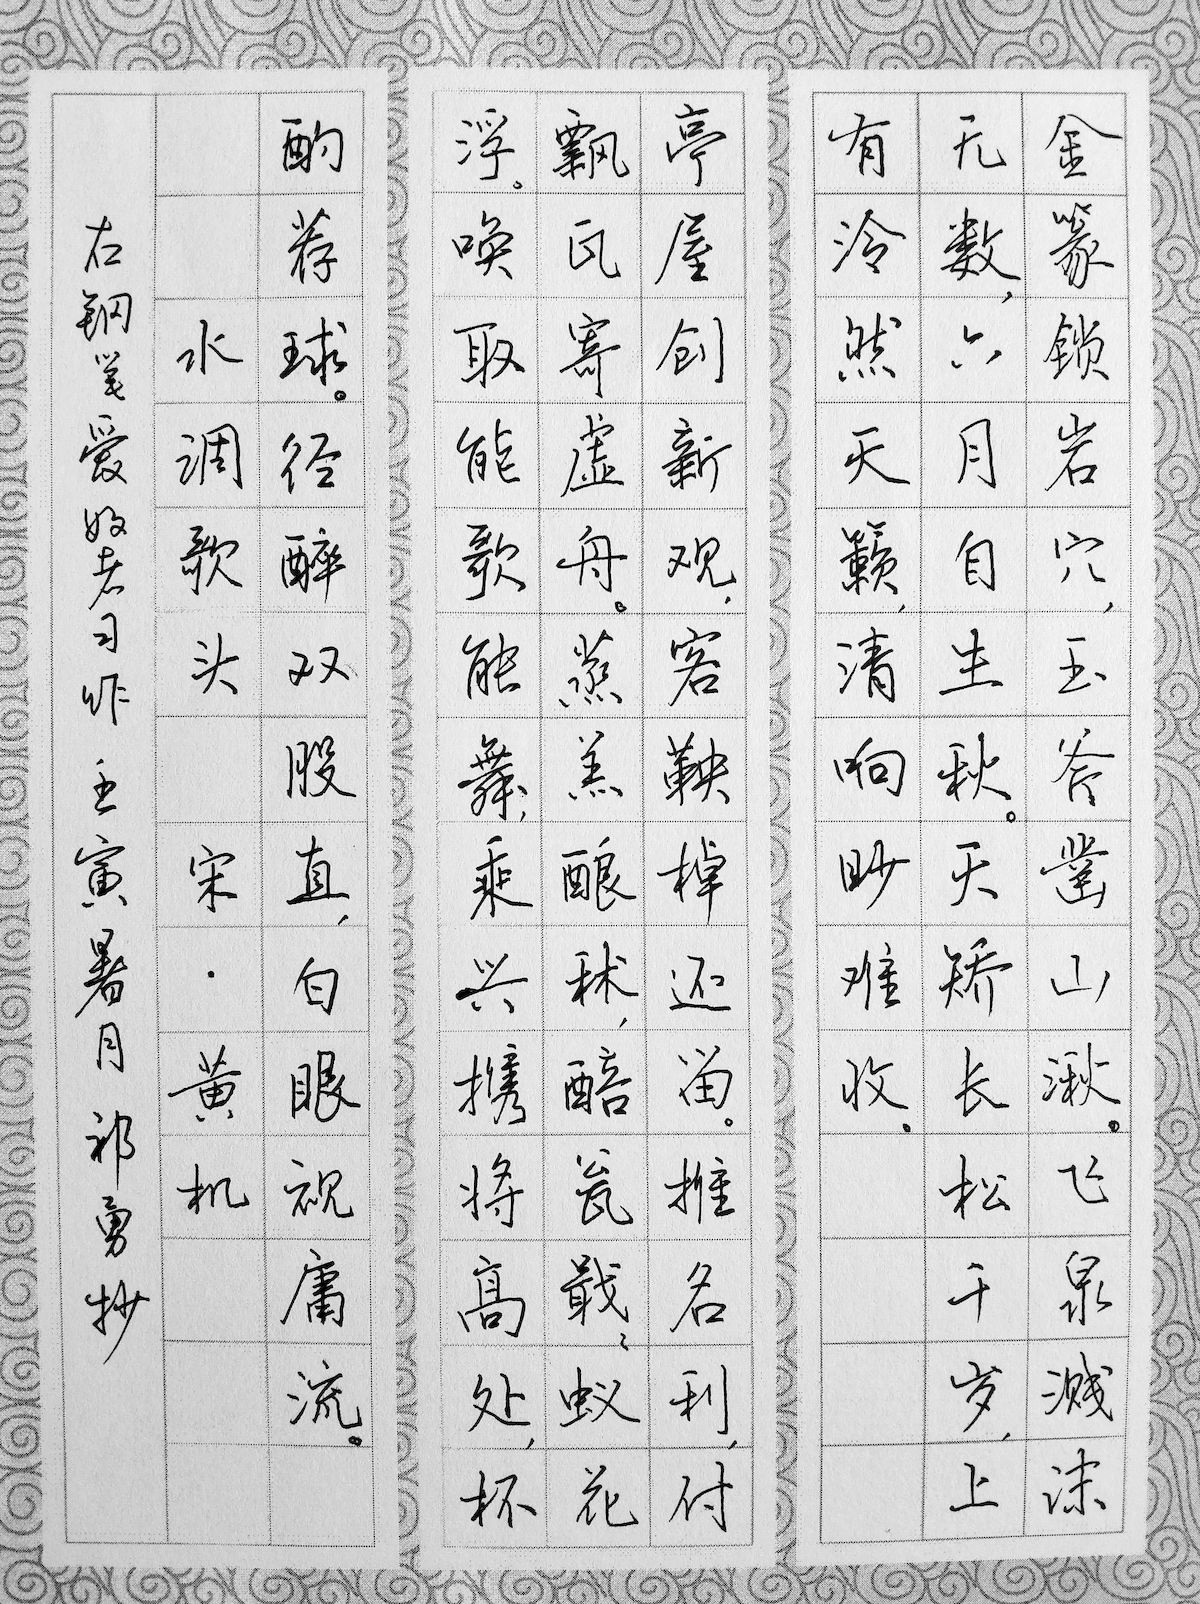 金篆锁岩穴,玉斧凿山湫。飞泉溅沫
无数,六月自生秋。天矫长松千岁,上
有泠然天籁,清响眇难收。
亭屋创新观,客鞅棹还留。推名利,付
飘瓦寄虚舟。蒸羔酿秫,醅瓮戢戢蚁花
浮。唤取能歌能舞,乘兴携将高处,杯
酌荐球。径醉双股直,白眼视庸流。
水调歌头 宋·黄机
右钢笔爱好者习作 壬寅暑月 祁勇抄